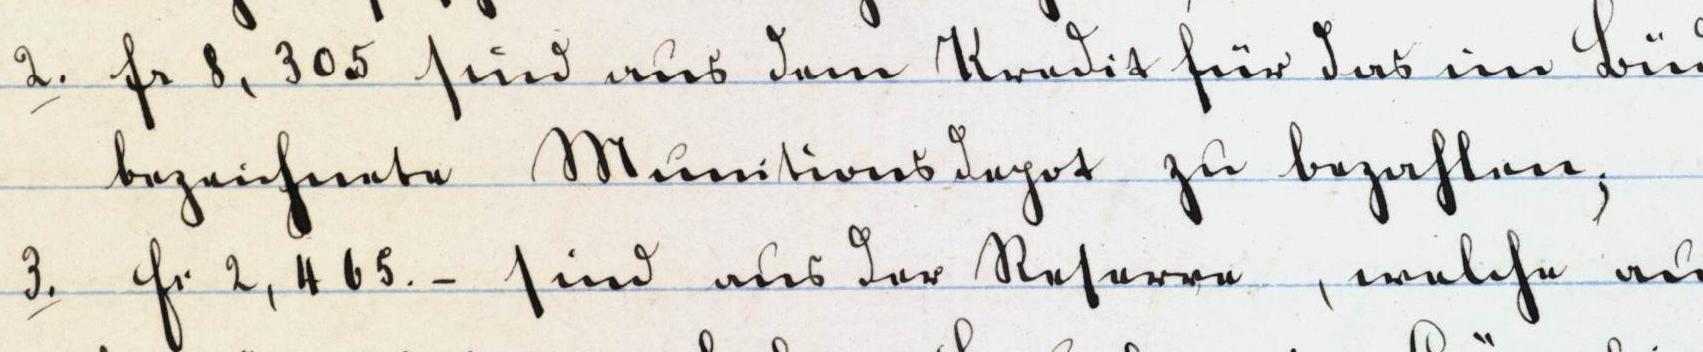 2. fr 8,305 sind aus dem Kredit für das im
bezeichnete Munitionsdepot zu bezahlen;
3. fr 2,465.- sind aus der Reserve, welche